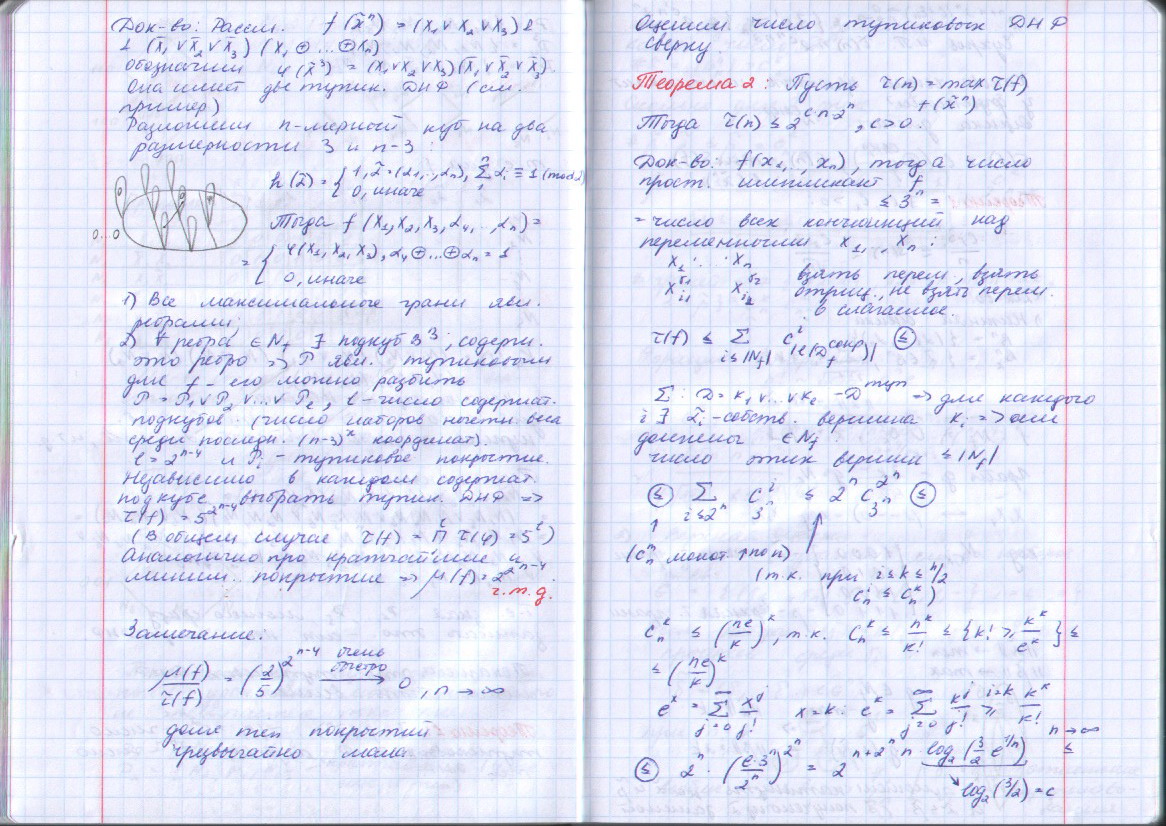 Док-во: Рассм. f(x̃ⁿ) = (x₁ ∨ x₂ ∨ x₃) &
& (x̄₁ ∨ x̄₂ ∨ x̄₃) (x₁ ⊕ ... ⊕ xₙ)
Обозначим φ(x̃³) = (x₁ ∨ x₂ ∨ x₃)(x̄₁ ∨ x̄₂ ∨ x̄₃).
Она имеет две тупик. ДНФ (см.
пример)
Разложим n-мерный куб на два
размерности 3 и n-3 :
h(α̃) = { 1, α̃ = (α₁,..,αₙ), Σ αᵢ ≡ 1 (mod 2)
0, иначе
0...0
Тогда f(x₁, x₂, x₃, α₄, .., αₙ) =
= { φ(x₁, x₂, x₃), α₄ ⊕ ... ⊕ αₙ = 1
0, иначе
1) Все максимальные грани явл.
ребрами;
2) ∀ ребра ∈ N_f ∃ подкуб B³, содерж.
это ребро => P явл. тупиковым
для f - его можно разбить
P = P₁ ∨ P₂ ∨ ... ∨ P_l, l - число содержат.
подкубов (число наборов нечетн веса
среди последн. (n-3)ˣ координат).
l = 2ⁿ⁻⁴ и Pᵢ - тупиковое покрытие.
Независимо в каждом содержат.
подкубе выбрать тупик. ДНФ =>
τ(f) = 5^(2ⁿ⁻⁴)
(В общем случае τ(f) = Π τ(φ) = 5ˡ)
Аналогично про кратчайшие и
миним. покрытие => μ(f) = 2^(2ⁿ⁻⁴)
ч.т.д.
Замечание:
μ(f)/τ(f) = (2/5)^(2ⁿ⁻⁴) очень быстро → 0, n → ∞
доля тех покрытий
чрезвычайно мала.
Оценим число тупиковых ДНФ
сверху
Теорема 2: Пусть τ(n) = max τ(f)
f(x̃ⁿ)
Тогда τ(n) ≤ 2^(c·n·2ⁿ), c>0.
Док-во: f(x₁, .., xₙ), тогда число
прост. импликант f
≤ 3ⁿ =
= число всех конъюнкций над
переменными x₁, .., xₙ :
x₁ .. xₙ
x_{i1}^{σ1} x_{i2}^{σ2} взять перем, взять
отриц., не взять перем.
в слагаемое.
τ(f) ≤ Σ_{i≤|N_f|} C^i_{|l(D_f^{сокр})|} (≤)
Σ : D = K₁ ∨ ... ∨ K_l - D^{туп} => для каждого
i ∃ α̃ᵢ - собств. вершина Kᵢ => они
должны ∈ N_f
число этих вершин ≤ |N_f|
(≤) Σ_{i≤2ⁿ} C^i_{3ⁿ} ≤ 2ⁿ C^{2ⁿ}_{3ⁿ} (≤)
1
(Cₙᵐ монот ↑ по n)
(т.к. при i ≤ k ≤ n/2
Cₙⁱ ≤ Cₙᵏ)
Cₙᵏ ≤ (ne/k)ᵏ, т.к. Cₙᵏ ≤ nᵏ/k! ≤ {k! ≥ kᵏ/eᵏ} ≤
≤ (ne/k)ᵏ
eˣ = Σ_{j=0}^∞ xʲ/j! x = k : eᵏ = Σ_{j=0}^∞ kʲ/j! ≥^{j=k} kᵏ/k!
n → ∞
(≤) 2ⁿ · (e·3ⁿ/2ⁿ)^(2ⁿ) = 2^(n + 2ⁿ n log₂(3/2 e^(1/n))) ≤
log₂(3/2) = c